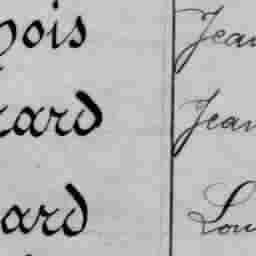 ois Jean
ard Jean
ard Lou